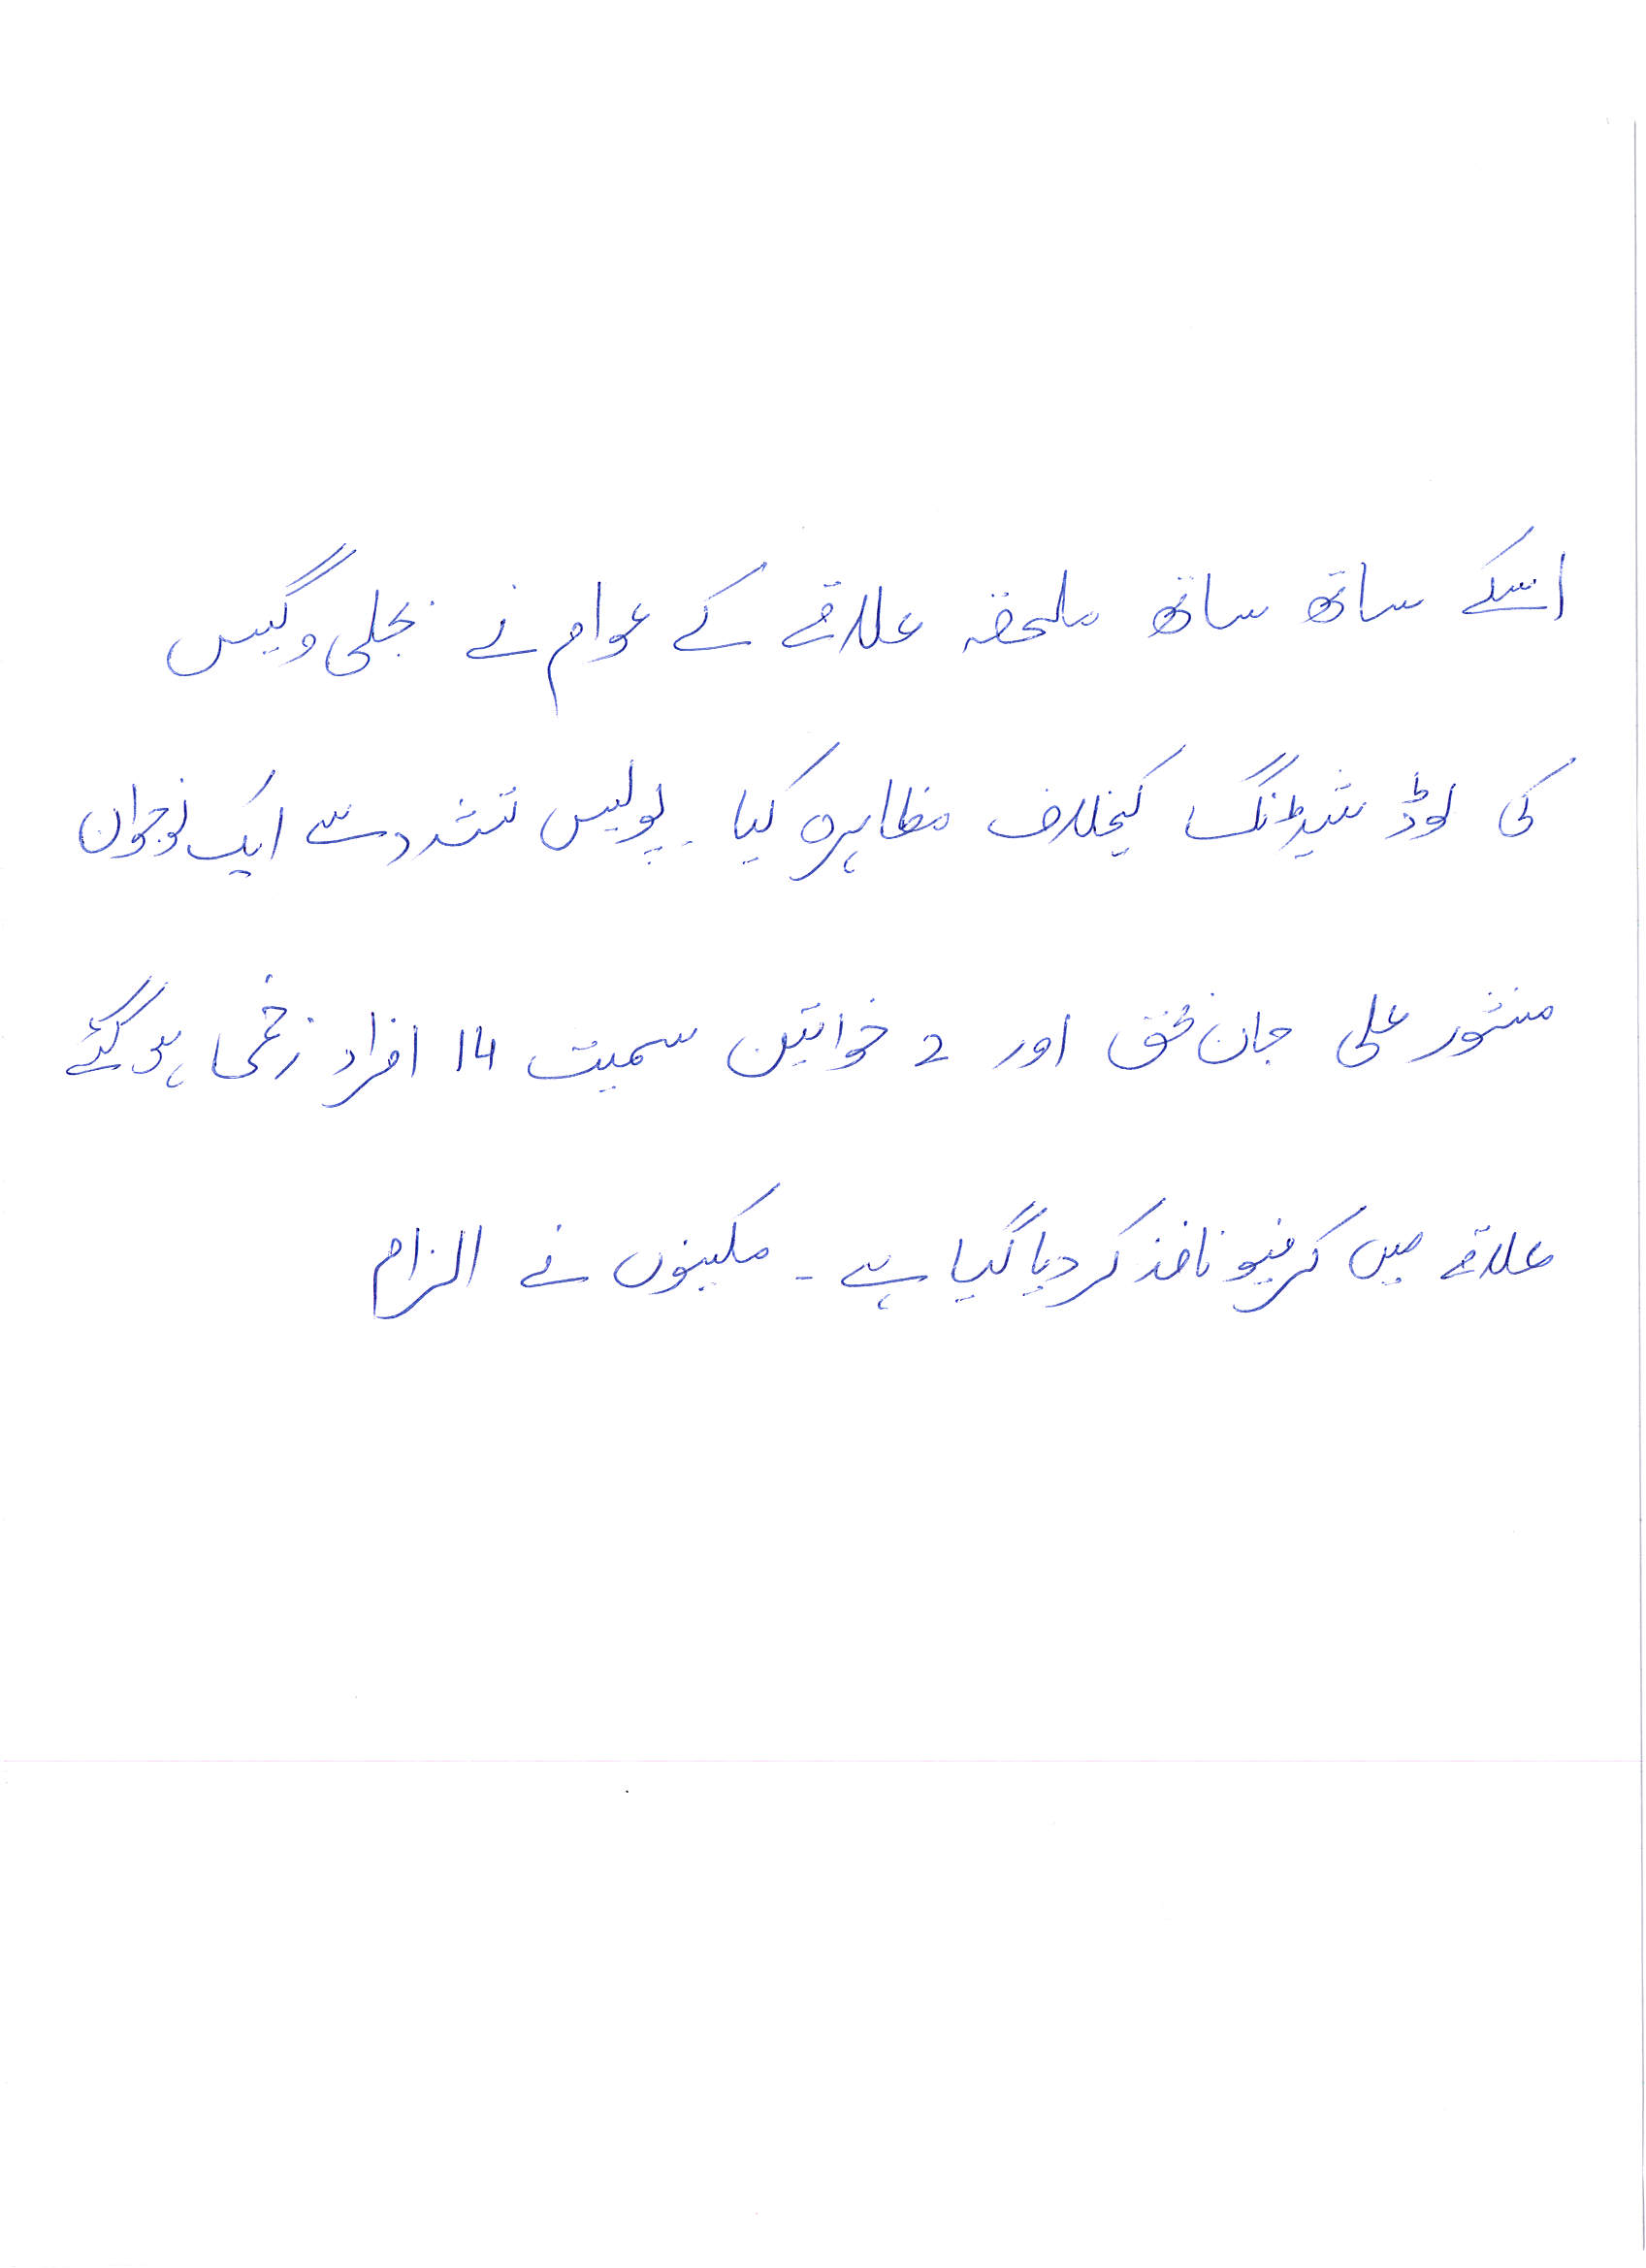 اسکے ساتھ ساتھ ملحقہ علاقے کے عوام نے بجلی و گیس
کی لوڈ شیڈنگ کیخلاف مظاہرہ کیا۔ پولیس تشدد سے ایک نوجوان
منشور علی جان بحق اور 2 خواتین سمیت 14 افراد زخمی ہو گئے
علاقے میں کرفیو نافذ کر دیا گیا ہے۔ مکینوں نے الزام